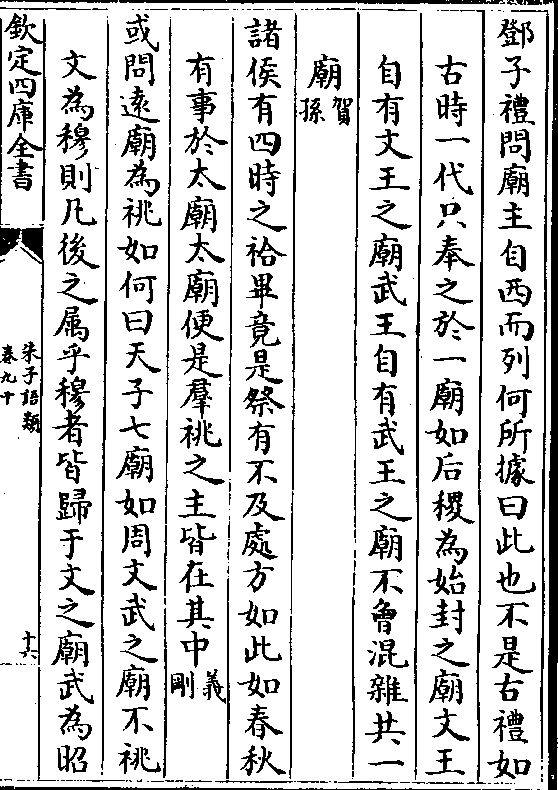 鄧子禮問廟主自西而列何所據曰此也不是古禮如
古時一代只奉之於一廟如后稷為始封之廟文王
自有文王之廟武王自有武王之廟不曾混雜共一
廟賀孫
諸侯有四時之祫畢竟是祭有不及處方如此如春秋
有事於太廟太廟便是羣祧之主皆在其中義剛
或問遠廟為祧如何曰天子七廟如周文武之廟不祧
文為穆則凡後之属乎穆者皆歸于文之廟武為昭
欽定四庫全書
朱子語類
卷九十
十六